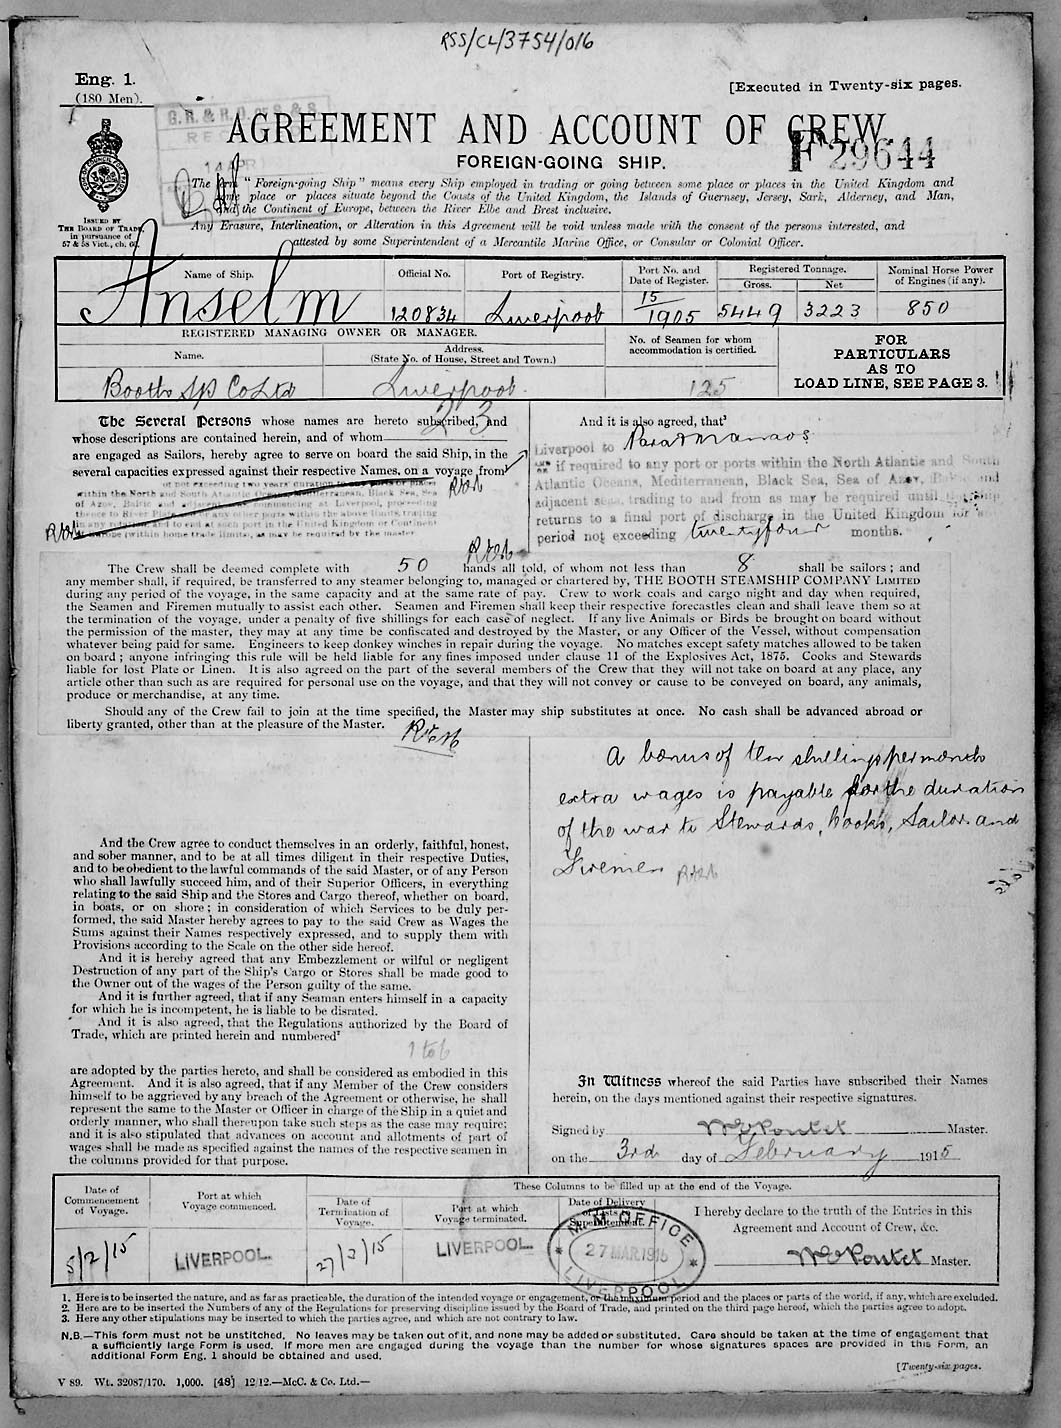 RSS/CL/3754/016
Eng. 1.
(180 Men).
[Executed in Twenty-six pages.
G.R. & R.O. OF S & S
AGREEMENT AND ACCOUNT OF CREW.
FOREIGN-GOING SHIP.
F 29644
The term "Foreign-going Ship" means every Ship employed in trading or going between some place or places in the United Kingdom and
some place or places situate beyond the Coasts of the United Kingdom, the Islands of Guernsey, Jersey, Sark, Alderney, and Man,
and the Continent of Europe, between the River Elbe and Brest inclusive.
Any Erasure, Interlineation, or Alteration in this Agreement will be void unless made with the consent of the persons interested, and
attested by some Superintendent of a Mercantile Marine Office, or Consular or Colonial Officer.
ISSUED BY
THE BOARD OF TRADE,
in pursuance of
57 & 58 Vict., ch. 60.
Name of Ship.
Official No.
Port of Registry.
Port No. and
Date of Register.
Registered Tonnage.
Gross.
Net
Nominal Horse Power
of Engines (if any).
Anselm
120834
Liverpool
15/1905
5449
3223
850
REGISTERED MANAGING OWNER OR MANAGER.
Name.
Address.
(State No. of House, Street and Town.)
No. of Seamen for whom
accommodation is certified.
FOR
PARTICULARS
AS TO
LOAD LINE, SEE PAGE 3.
Booths SP Co Ltd
Liverpool.
125
The Several Persons whose names are hereto subscribed, and
whose descriptions are contained herein, and of whom 23
are engaged as Sailors, hereby agree to serve on board the said Ship, in the
several capacities expressed against their respective Names, on a voyage from
of not exceeding two years' duration to any ports or places
within the North and South Atlantic Oceans, Mediterranean, Black Sea, Sea
of Azov, Baltic and adjacent seas commencing at Liverpool, proceeding
thence to River Plate or any other ports within the above limits, trading
in any rotation, and to end at such port in the United Kingdom or Continent
of Europe (within home trade limits), as may be required by the master
And it is also agreed, that³
Liverpool to Para & Manaos
and or if required to any port or ports within the North Atlantic and South
Atlantic Oceans, Mediterranean, Black Sea, Sea of Azov, Baltic and
adjacent seas, trading to and from as may be required until the ship
returns to a final port of discharge in the United Kingdom for a
period not exceeding twentyfour months.
The Crew shall be deemed complete with 50 hands all told, of whom not less than 8 shall be sailors; and
any member shall, if required, be transferred to any steamer belonging to, managed or chartered by, THE BOOTH STEAMSHIP COMPANY LIMITED
during any period of the voyage, in the same capacity and at the same rate of pay. Crew to work coals and cargo night and day when required,
the Seamen and Firemen mutually to assist each other. Seamen and Firemen shall keep their respective forecastles clean and shall leave them so at
the termination of the voyage, under a penalty of five shillings for each case of neglect. If any live Animals or Birds be brought on board without
the permission of the master, they may at any time be confiscated and destroyed by the Master, or any Officer of the Vessel, without compensation
whatever being paid for same. Engineers to keep donkey winches in repair during the voyage. No matches except safety matches allowed to be taken
on board; anyone infringing this rule will be held liable for any fines imposed under clause 11 of the Explosives Act, 1875. Cooks and Stewards
liable for lost Plate or Linen. It is also agreed on the part of the several members of the Crew that they will not take on board at any place, any
article other than such as are required for personal use on the voyage, and that they will not convey or cause to be conveyed on board, any animals,
produce or merchandise, at any time.
Should any of the Crew fail to join at the time specified, the Master may ship substitutes at once. No cash shall be advanced abroad or
liberty granted, other than at the pleasure of the Master.
A bonus of ten shillings per month
extra wages is payable for the duration
of the war to Stewards, Cooks, Sailors and
Firemen
And the Crew agree to conduct themselves in an orderly, faithful, honest,
and sober manner, and to be at all times diligent in their respective Duties,
and to be obedient to the lawful commands of the said Master, or of any Person
who shall lawfully succeed him, and of their Superior Officers, in everything
relating to the said Ship and the Stores and Cargo thereof, whether on board,
in boats, or on shore; in consideration of which Services to be duly per-
formed, the said Master hereby agrees to pay to the said Crew as Wages the
Sums against their Names respectively expressed, and to supply them with
Provisions according to the Scale on the other side hereof.
And it is hereby agreed that any Embezzlement or wilful or negligent
Destruction of any part of the Ship's Cargo or Stores shall be made good to
the Owner out of the wages of the Person guilty of the same.
And it is further agreed, that if any Seaman enters himself in a capacity
for which he is incompetent, he is liable to be disrated.
And it is also agreed, that the Regulations authorized by the Board of
Trade, which are printed herein and numbered²
1 to 6
are adopted by the parties hereto, and shall be considered as embodied in this
Agreement. And it is also agreed, that if any Member of the Crew considers
himself to be aggrieved by any breach of the Agreement or otherwise, he shall
represent the same to the Master or Officer in charge of the Ship in a quiet and
orderly manner, who shall thereupon take such steps as the case may require;
and it is also stipulated that advances on account and allotments of part of
wages shall be made as specified against the names of the respective seamen in
the columns provided for that purpose.
In Witness whereof the said Parties have subscribed their Names
herein, on the days mentioned against their respective signatures.
Signed by Master.
on the 3rd day of February 1915
Date of
Commencement
of Voyage.
Port at which
Voyage commenced.
These Columns to be filled up at the end of the Voyage.
Date of
Termination of
Voyage.
Port at which
Voyage terminated.
Date of Delivery
of Lists to
Superintendent.
I hereby declare to the truth of the Entries in this
Agreement and Account of Crew, &c.
5/2/15
LIVERPOOL.
27/3/15
LIVERPOOL.
M.M. OFFICE
27 MAR 1915
LIVERPOOL
Master.
1. Here is to be inserted the nature, and as far as practicable, the duration of the intended voyage or engagement, or the maximum period and the places or parts of the world, if any, which are excluded.
2. Here are to be inserted the Numbers of any of the Regulations for preserving discipline issued by the Board of Trade, and printed on the third page hereof, which the parties agree to adopt.
3. Here any other stipulations may be inserted to which the parties agree, and which are not contrary to law.
N.B.—This form must not be unstitched. No leaves may be taken out of it, and none may be added or substituted. Care should be taken at the time of engagement that
a sufficiently large Form is used. If more men are engaged during the voyage than the number for whose signatures spaces are provided in this Form, an
additional Form Eng. 1 should be obtained and used.
[Twenty-six pages.
V 89. Wt. 32087/170. 1,000. [48] 12/12.—McC. & Co. Ltd.—